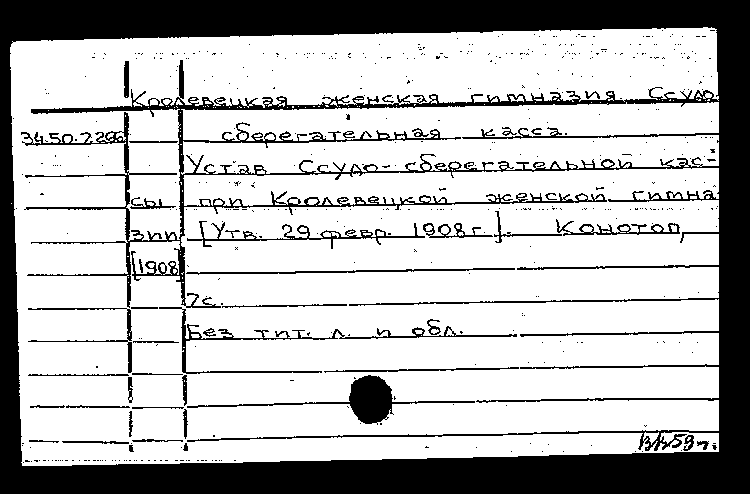 Кролевецкая женская гимназия Ссудо-
34.50-2266 сберегательная касса.
Устав Ссудо-сберегательной кас-
сы при Кролевецкой женской гимна
зии [Утв. 29 февр. 1908 г.]. Конотоп,
[1908]
7с.
Без тит. л. и обл.